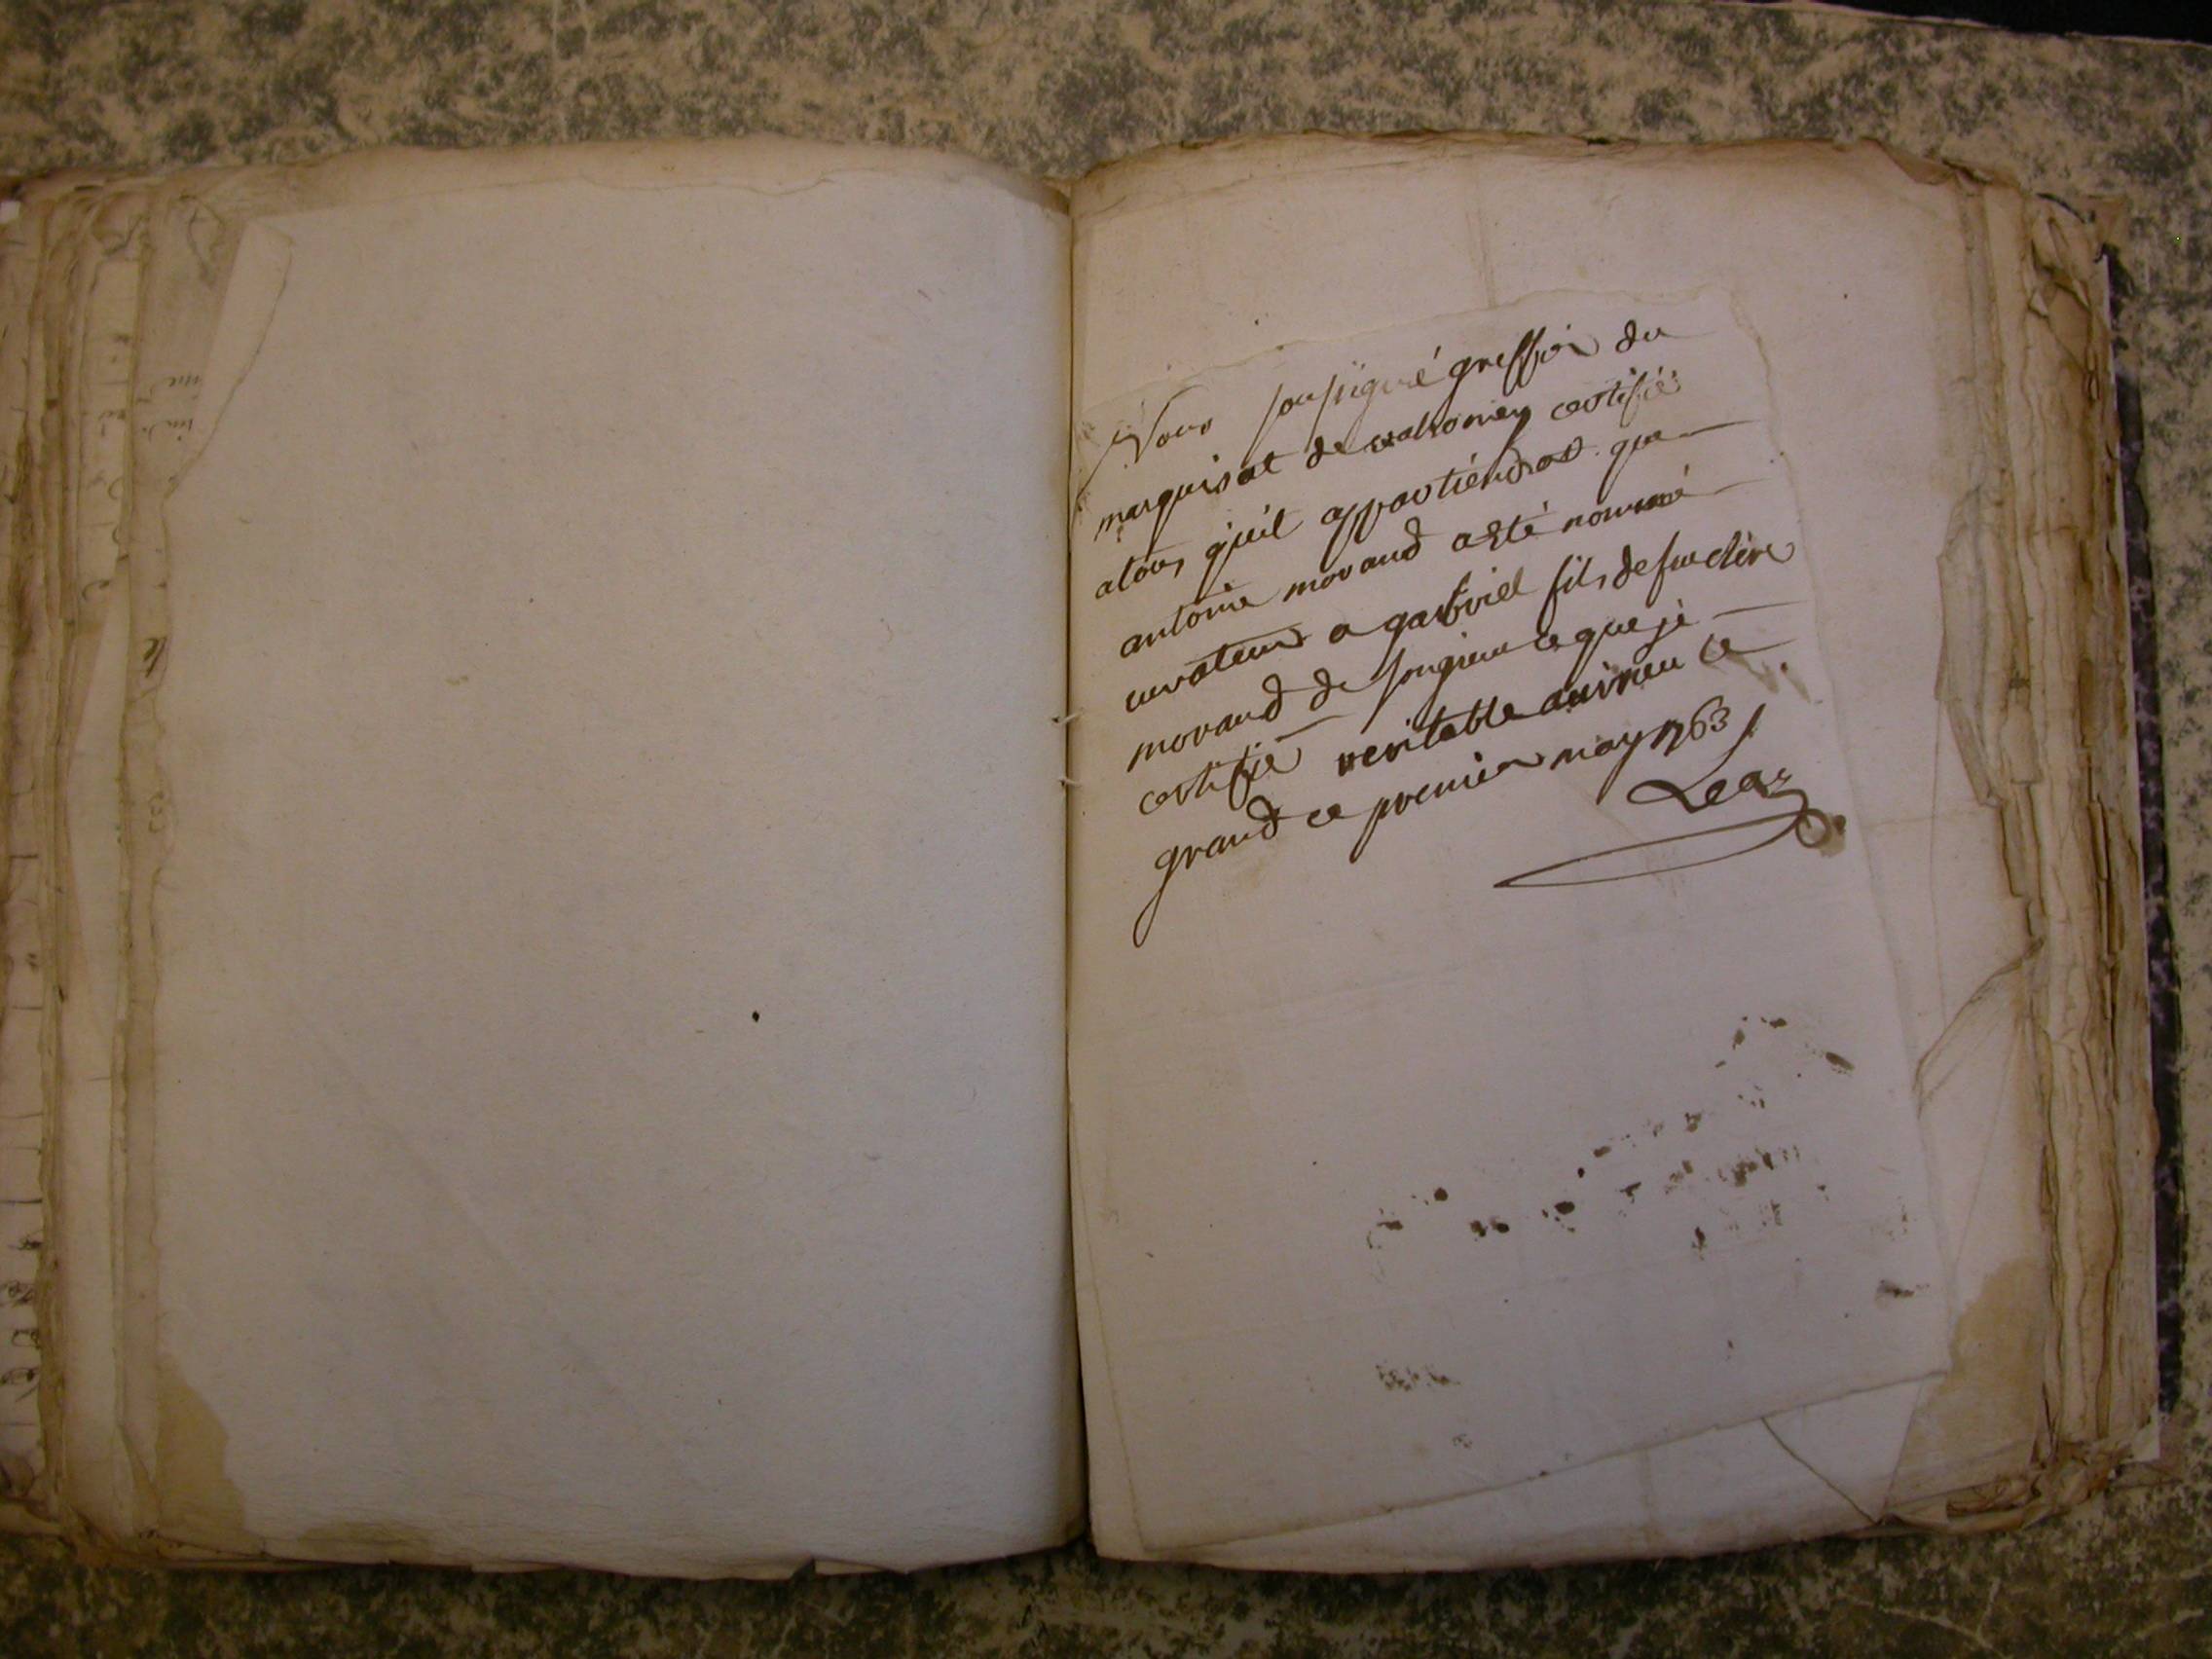 Nous soussigné greffier du
marquisat de valromey certifié
atous quil appartiendrat que
antoine morand a esté nommé
curateur a gabriel fils de feu clere
morand de songieu ce que je
certifie veritable auvireu le
grand ce premier may 1763